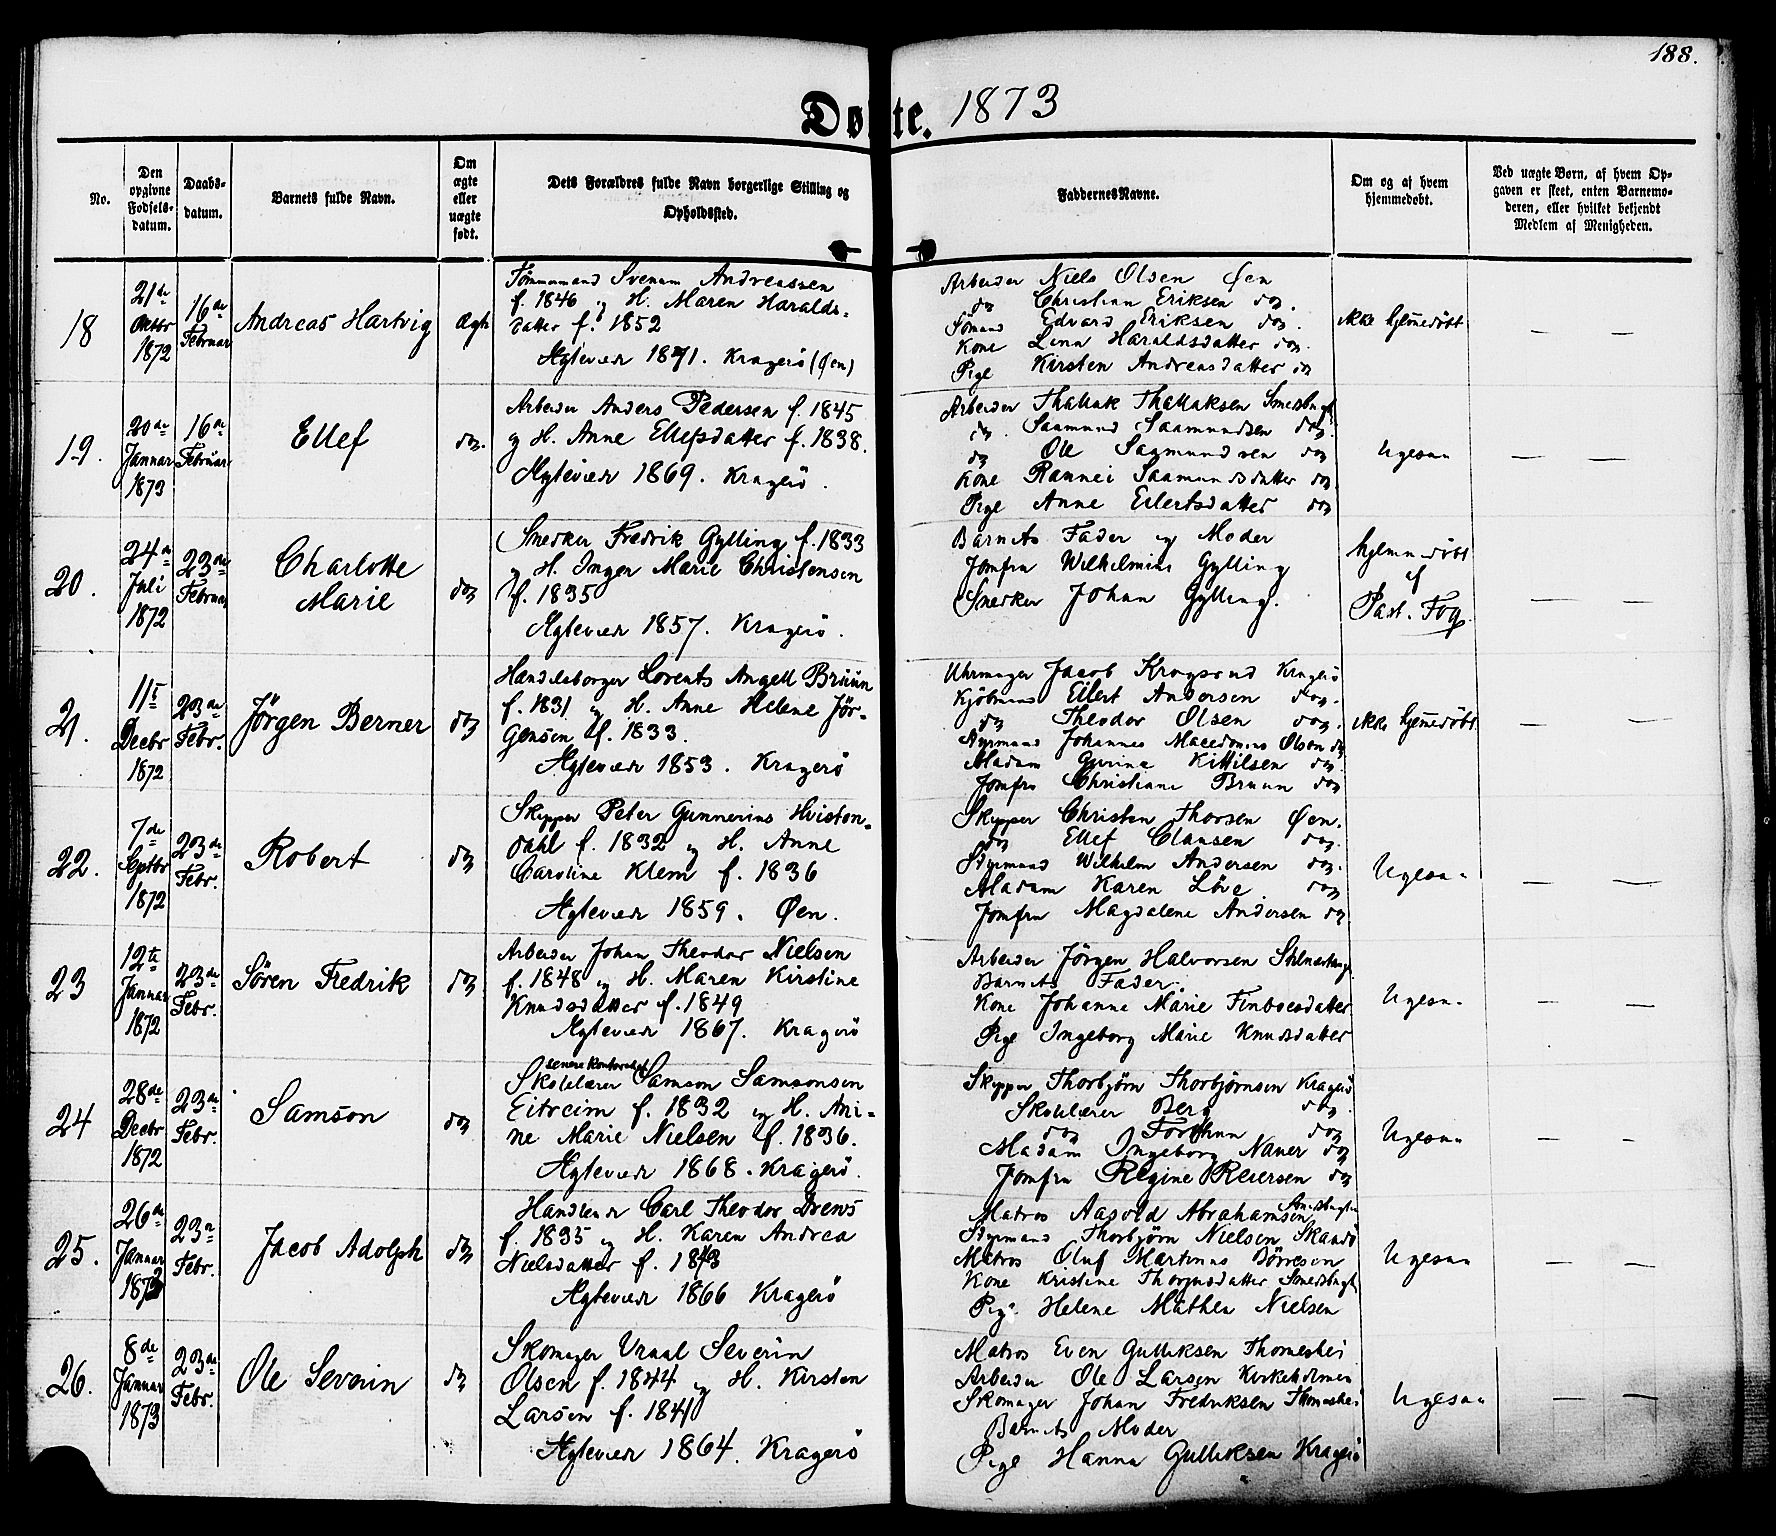 188.
Døbte. 1873
No.
Den opgivne Fødsels-datum.
Daabs-datum.
Barnets fulde Navn.
Om ægte eller uægte født.
Dets Forældres fulde Navn borgerlige Stilling og Opholdssted.
Faddernes Navne.
Om og af hvem hjemmedøbt.
Ved uægte Børn, af hvem Op-gaven er skeet, enten Barnemo-deren, eller hvilket bekjendt Medlem af Menigheden.
18
21de Oktbr 1872
16de Februar
Andreas Hartvig
Ægte
Tømmermand Svenum Andreassen
f. 1846 og H. Maren Haralds-
datter f. 1852
Ægteviede 1871. Kragerö (Øen)
Arbeider Niels Olsen Øen
do Christian Eriksen do.
Sömand Edvard Eriksen do.
Kone Lena Haraldsdatter do.
Pige Kirsten Andreasdatter do
ikke hjemmedöbt
— —
19.
20de Januar 1873
16de Februar
Ellef
do.
Arbeider Anders Pedersen f. 1845
og H. Anne Ellefsdatter f. 1838.
Ægteviede 1869. Kragerö.
Arbeider Thallak Thallaksen Smedsbugt
do. Saamund Saamundsen do.
do Ole Saamundsen do
Kone Rannei Saamundsdatter do
Pige Anne Eilertsdatter do
Ligesaa
— —
20.
24de Juli 1872
23de Februar
Charlotte Marie
do
Snedker Fredrik Gylling f. 1833
og H. Inger Marie Christensen
f. 1835
Ægteviede 1857. Kragerö.
Barnets Fader og Moder
Jomfru Wilhelmine Gylling
Snedker Johan Gylling.
hjemmedöbt af Past. Fog
— —
21.
11te Decbr 1872
23de Febr.
Jörgen Berner
do
Handelsborger Lorents Angell Bruun
f. 1831 og H. Anne Helene Jör-
gensen f. 1833.
Ægteviede 1853. Kragerö
Uhrmager Jacob Kragsund Kragerö
Kjöbmand Eilert Andersen do.
do Theodor Olsen do.
Styrmand Johannes Macedonius Olsen do
Madam Gurine Kittilsen do.
Jomfru Christiane Bruun do
ikke hjemmedöbt
— —
22.
7de Septbr 1872
23de Febr.
Robert
do
Skipper Peter Gunnerius Hviston-
dahl f. 1832 og H. Anne
Caroline Klem f. 1836
Ægteviede 1859. Øen.
Skipper Christen Thorsen Øen.
do Ellef Clausen do.
Styrmand Wilhelm Andersen do.
Madam Karen Löve do
Jomfru Magdalene Andersen do.
Ligesaa
— —
23
12te Januar 1872
23de Febr.
Sören Fredrik
do
Arbeider Johan Theodor Nielsen
f. 1848 og H. Maren Kirstine
Knudsdatter f. 1849
Ægteviede 1867. Kragerö
Arbeider Jörgen Halvorsen
Barnets Fader.
Kone Johanne Marie Finboesdatter
Pige Ingeborg Marie Knudsdatter
Ligesaa
— —
24
28de Decbr 1872
23de Febr.
Samson
do
senere Kontorchef
Skolelærer Samson Samsonsen
Eitreim f. 1832 og H. Ani-
ne Marie Nielsen f. 1836.
Ægteviede 1868. Kragerö.
Skipper Thorbjörn Thorbjörnsen Kragerö
Skolelærer Berg do.
do Forthun do
Madam Ingeborg Nauer do
Jomfru Regine Reiersen do
Ligesaa
— —
25.
26de Januar 1873
23de Febr.
Jacob Adolph
do
Handlende Carl Theodor Drews
f. 1835 og H. Karen Andrea
Nielsdatter f. 1843
Ægteviede 1866 Kragerö
Matros Aasold Abrahamsen Smedsbugten
Styrmand Thorbjörn Nielsen Skaadö
Matros Oluf Martinus Börresen
Kone Kristine Thorjusdatter Smedsbugt
Pige Helene Mathea Nielsen
Ligesaa
— —
26.
8de Januar 1873
23de Febr.
Ole Severin
do
Skomager Vraal Severin
Olsen f. 1844 og H. Kirsten
Larsen f. 1841
Ægteviede 1864. Kragerö
Matros Even Gulliksen Thomeshei
Arbeider Ole Larsen Kirkeholmen
Skomager Johan Fredriksen Thomeshei
Barnets Moder
Pige Hanna Gulliksen Kragerö
Ligesaa
— —